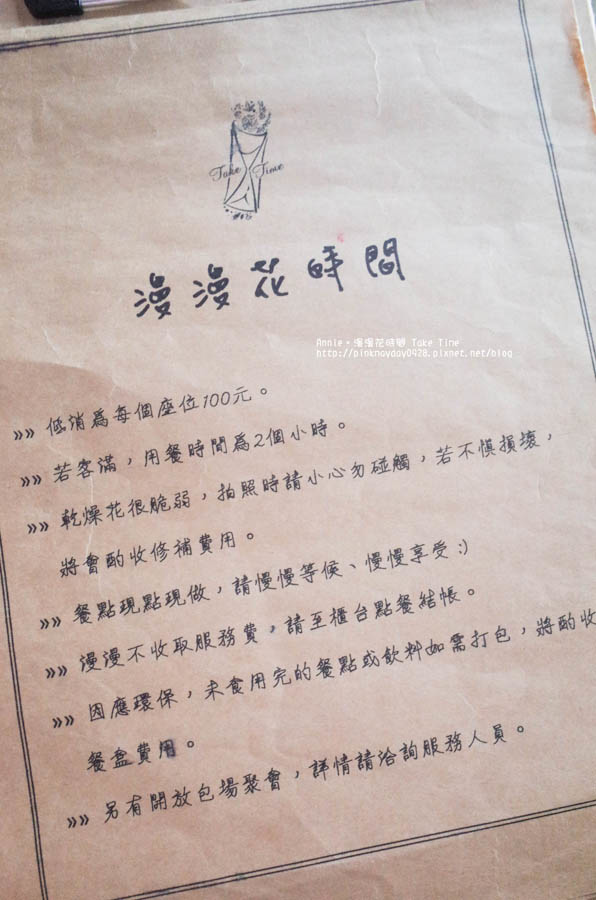 Take Time
漫漫花時間
Annie。漫漫花時間 Take Time
http://pinknayday0428.pixnet.net/blog
»» 低消為每個座位100元。
»» 若客滿，用餐時間為2個小時。
»» 乾燥花很脆弱，拍照時請小心勿碰觸，若不慎損壞，
將會酌收修補費用。
»» 餐點現點現做，請慢慢等候、慢慢享受:)
»» 漫漫不收取服務費，請至櫃台點餐結帳。
»» 因應環保，未食用完的餐點或飲料如需打包，將酌收
餐盒費用。
»» 另有開放包場聚會，詳情請洽詢服務人員。